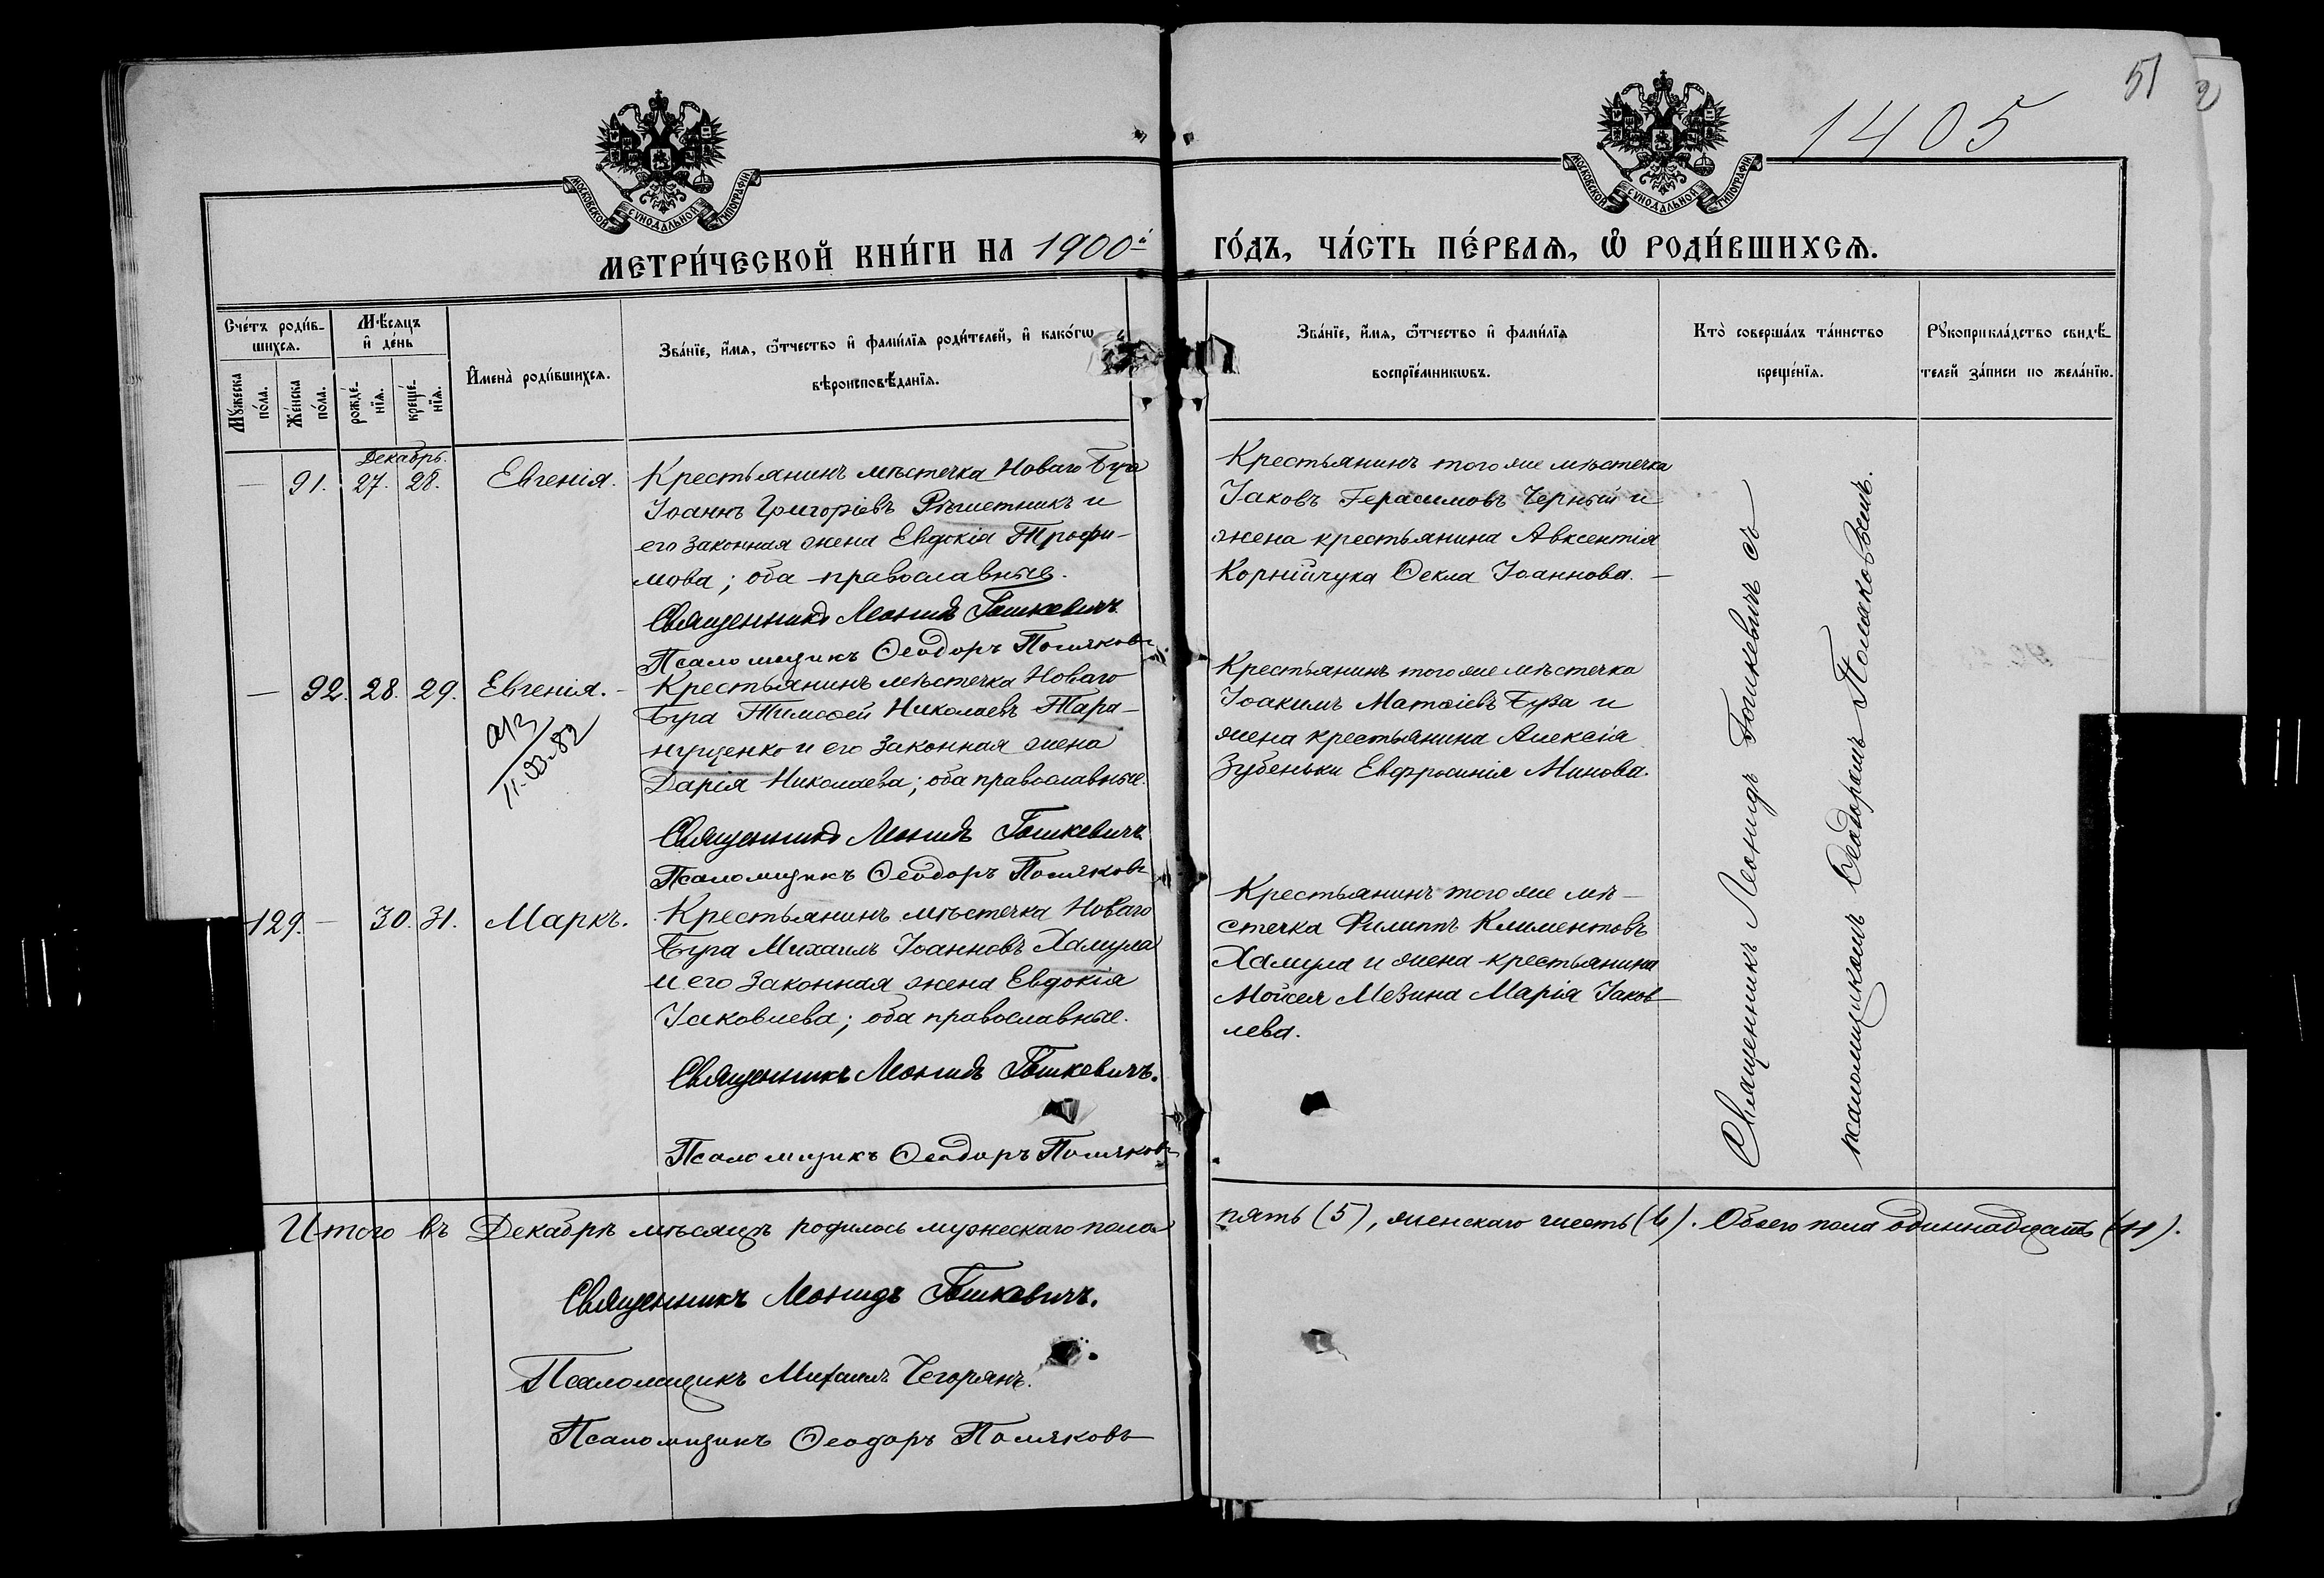 51
1405
МОСКОВСКОЙ СѴНОДАЛЬНОЙ ТИПОГРАФІИ
МОСКОВСКОЙ СѴНОДАЛЬНОЙ ТИПОГРАФІИ
МЕТРИ́ЧЕСКОЙ КНИ́ГИ НА 1900й ГО́ДЪ, ЧА́СТЬ ПЕ́РВАѦ, Ѽ РОДИ́ВШИХСѦ.
Сче́тъ роди́в-
шихсѧ.
Мꙋ́жеска по́ла.
Же́нска по́ла.
Мѣ́сяцъ
и҆ де́нь
рожде́-
нїѧ.
креще́-
нїѧ.
И҆мена̀ роди́вшихсѧ.
Зва́нїе, и҆́мѧ, ѻ҆́тчество и҆ фами́лїѧ роди́телей, и҆ како́гѡ
вѣроисповѣ́данїѧ.
Зва́нїе, и҆́мѧ, ѻ҆́тчество и҆ фами́лїѧ
воспрїе́мникѡвъ.
Кто̀ соверша́лъ та́инство
креще́нїѧ.
Рꙋкоприкла́дство свидѣ́-
телей за́писи по жела́нїю.
Декабрь.
— 91. 27. 28. Евгенія.
Крестьянинъ мѣстечка Новаго Буга
Іоаннъ Григоріевъ Рѣшетникъ и
его законная жена Евдокія Трофи-
мова; оба православные.
Священникъ Леонидъ Гошкевичъ
Псаломщикъ Ѳеодоръ Поляковъ
Крестьянинъ того же мѣстечка
Іаковъ Герасимовъ Черный и
жена крестьянина Авксентія
Корнійчука Ѳекла Іоаннова. —
— 92. 28. 29. Евгенія. —
а/з
11-03-82
Крестьянинъ мѣстечка Новаго
Буга Тимоѳей Николаевъ Тара-
нущенко и его законная жена
Дарія Николаева; оба православные.
Священникъ Леонидъ Гошкевичъ
Псаломщикъ Ѳеодоръ Поляковъ
Крестьянинъ того же мѣстечка
Іоакимъ Матѳіевъ Буза и
жена крестьянина Алексія
Зубеньки Евфросинія Минова.
129. — 30. 31. Маркъ.
Крестьянинъ мѣстечка Новаго
Буга Михаилъ Іоанновъ Хамула
и его законная жена Евдокія
Іаковлева; оба православные.
Священникъ Леонидъ Гошкевичъ.
Псаломщикъ Ѳеодоръ Поляковъ
Крестьянинъ того же мѣ-
стечка Филиппъ Климентовъ
Хамула и жена крестьянина
Мойсея Мезина Марія Іаков-
лева.
Священникъ Леонидъ Гошкевичъ съ
псаломщикомъ Ѳеодоромъ Поляковымъ.
Итого въ Декабрѣ мѣсяцѣ родилось мужескаго пола пять (5), женскаго шесть (6). Обоего пола одиннадцать (11).
Священникъ Леонидъ Гошкевичъ.
Псаломщикъ Михаилъ Чегорянъ.
Псаломщикъ Ѳеодоръ Поляковъ